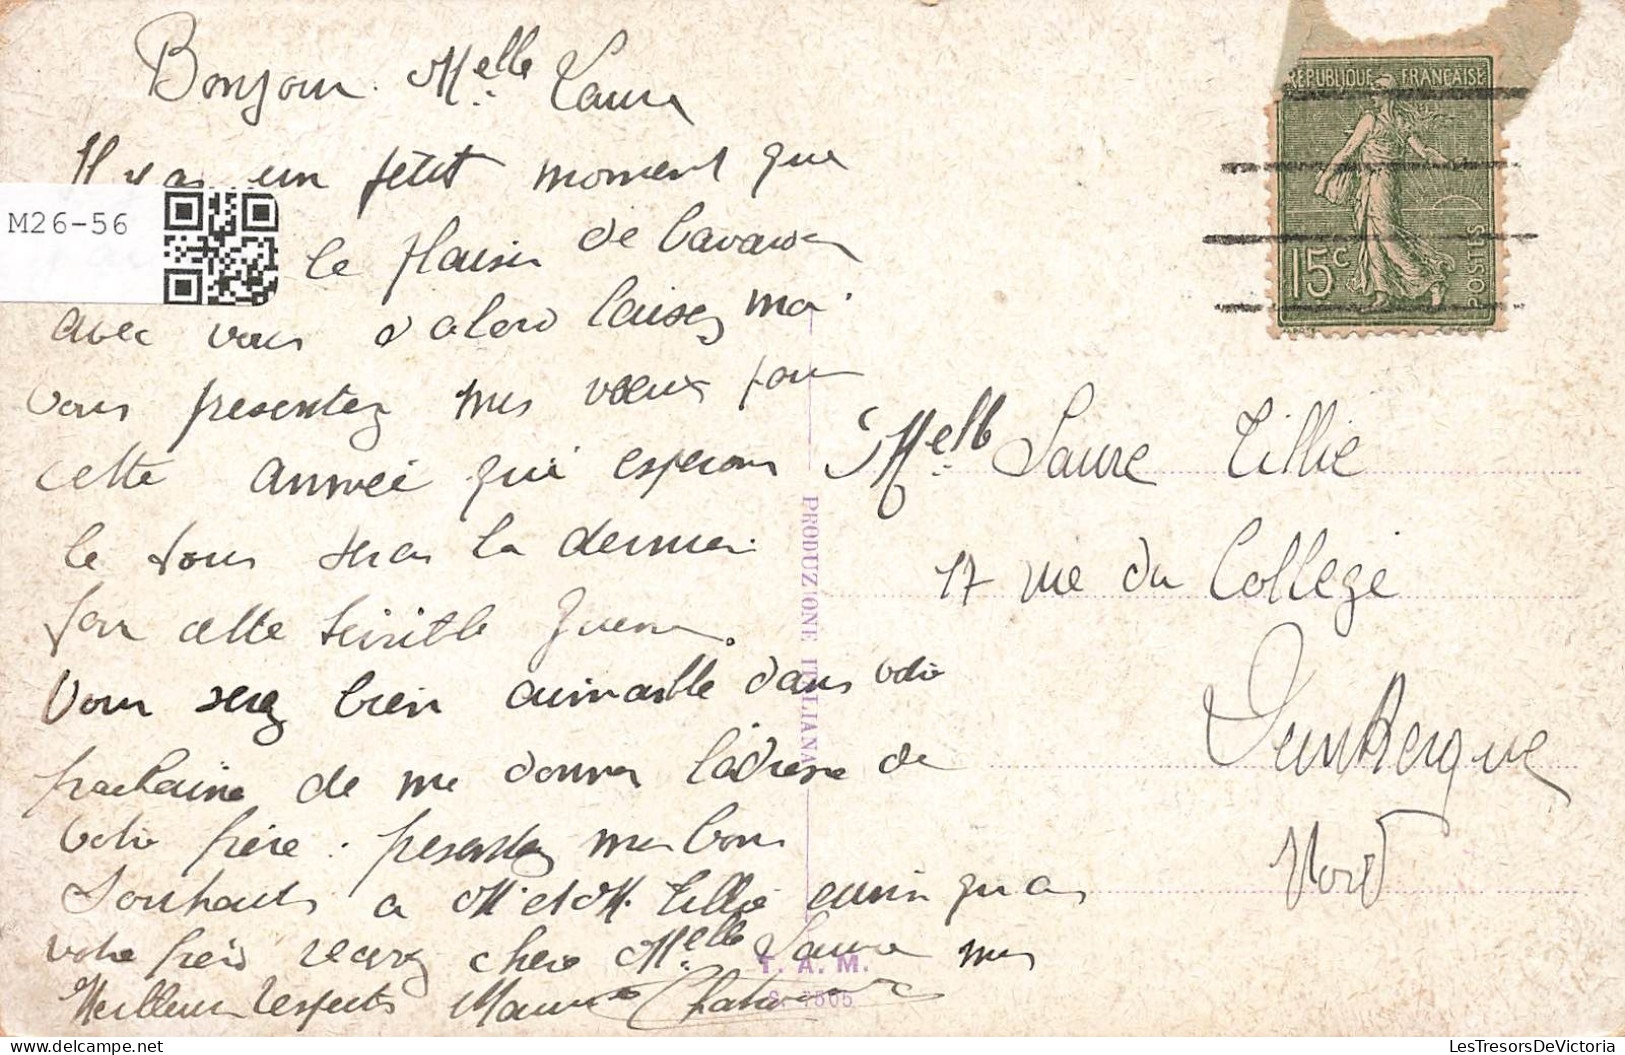 Bonjour Melle Laure
Il y a un petit moment que
le plaisir de
avec vous d'alord laisez moi
vous presentez mes vœux pour
cette année qui esperons
le tous sera la dernier
pour cette terrible guerre.
Vous serez bien aimable dans votre
prochaine de me donner l'adresse de
votre frère. presentez mes bons
souhaits a M. et M. Tillie ainsi qu'a
votre frère recevez chere Melle Laure mes
Meilleurs respects Maurice
REPUBLIQUE FRANÇAISE
15c
POSTES
Melle Laure Tillie
17 rue du College
Dunkerque
Nord
PRODUZIONE ITALIANA
T. A. M.
M26-56
LesTresorsDeVictoria